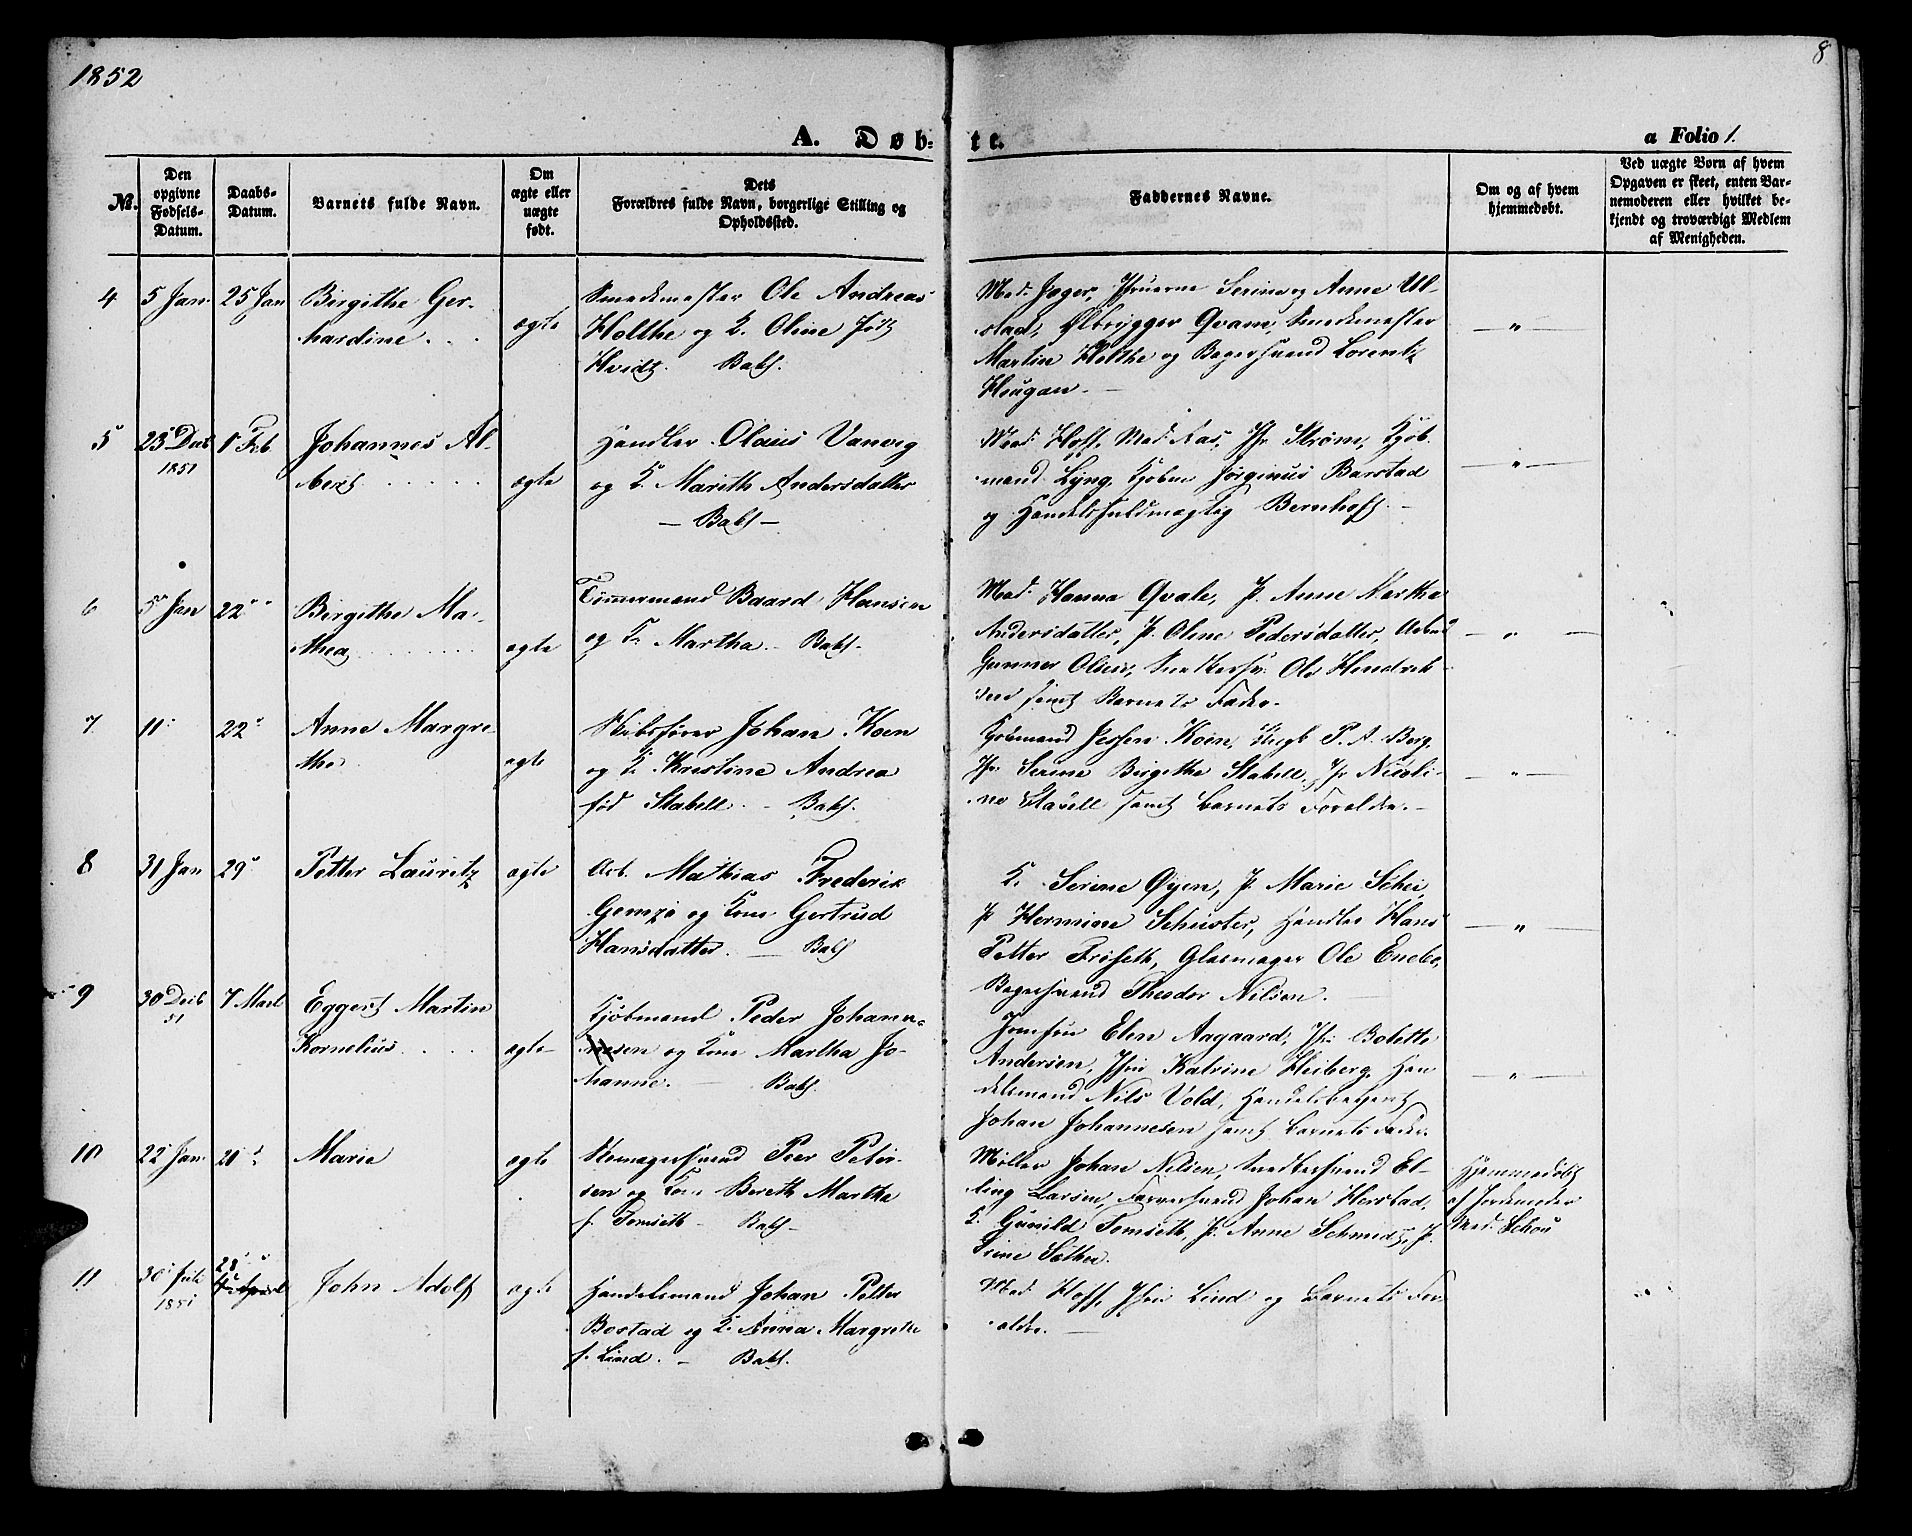 1852
8
A. Døb-
te.
a Folio 1.
No.
Den opgivne Fødsels-Datum.
Daabs-Datum.
Barnets fulde Navn.
Om ægte eller uægte født.
Dets Forældres fulde Navn, borgerlige Stilling og Opholdssted.
Faddernes Navne.
Om og af hvem hjemmedøbt.
Ved uægte Børn af hvem Opgaven er skeet, enten Barnemoderen eller hvilket bekjendt og troværdigt Medlem af Menigheden.
4
5 Jan
25 Jan
Birgithe Ger-
hardine . . .
ægte
Smedkmester Ole Andreas
Holthe og K. Oline født
Hvidt. Bakl.
Mad: Jæger, Jfruerne Serine og Anne Ul-
stad, Ølbrygger Qvam, Smedkmester
Martin Holthe og Bagersvend Lorentz
Haugan. —
— " —
5
23 Decb
1851
1 Feb
Johannes Al-
bert . . . . .
ægte
Handler Olaus Vanvig
og K. Marith Andersdatter
— Bakl —
Mad: Hoff, Mad: Aas, Jfr. Strøm, Kjøb-
mand Lyng, Kjøbm Jørginus Barstad
og Handelsfuldmægtig Bernhoft. —
— " —
6
5 Jan
22 "
Birgithe Ma-
thea . . . . .
ægte
Tømmermand Baard Hansen
og K. Martha. — Bakl.
Mad: Hanna Qvale, P. Anne Martha
Andersdatter, P. Oline Pedersdatter, Arbmd
Gunner Olsen, Snedkersv. Ole Hendrik-
sen samt Barnets Fader.
— " —
7
11
22
Anne Margre-
the
ægte
Skibsfører Johan Koen
og K. Kristine Andrea
fød Stabell. — Bakl.
Kjøbmand Jessen Koen, P. A. Berg,
Jfr. Serine Birgithe Stabell, Jfr Nicoli-
ne Stabell samt Barnets Forældre. —
— " —
8
31 Jan
29
Petter Lauritz
ægte
Arb. Mathias Frederik
Gemzø og Kone Gertrud
Hansdatter. — Bakl
K. Serine Øyen, P. Marie Schei,
P Hermine Schuster, Handler Hans
Petter Frøseth, Glasmager Ole Enebo,
Bagersvend Theodor Nilsen. —
— " —
9
30 Decb
51
7 Marts
Eggert Martin
Kornelius . . . .
ægte
Kjøbmand Peder Johann-
esen og Kone Martha Jo-
hanne. — Bakl.
Jomfru Elen Aagaard, Jfr. Bolette
Andersen, Jfru Katrine Heiberg, Han-
delsmand Nils Vold, Handelsbetjent
Johan Johannesen samt Barnets Fader.
— " —
10
22 Jan
21
Marie
ægte
Skomagersvend Peer Peter-
sen og Kone Bereth Martha
f. Tomseth — Bakl —
Møller Johan Nilsen, Snedkersvend El-
ling Larsen, Farversvend Johan Herstad,
K. Gunild Tomseth, P. Anne Schmidt, P.
Trine Sæther.
Hjemmedøbt
af Jordemoder
Mad. Schou
11
30
1851
28
John Adolf
ægte
Handelsmand Johan Petter
Bostad og K. Anna Margrethe
f. Lind. — Bakl.
Mad Hoff, Jfru Lind og Barnets For-
ældre. —